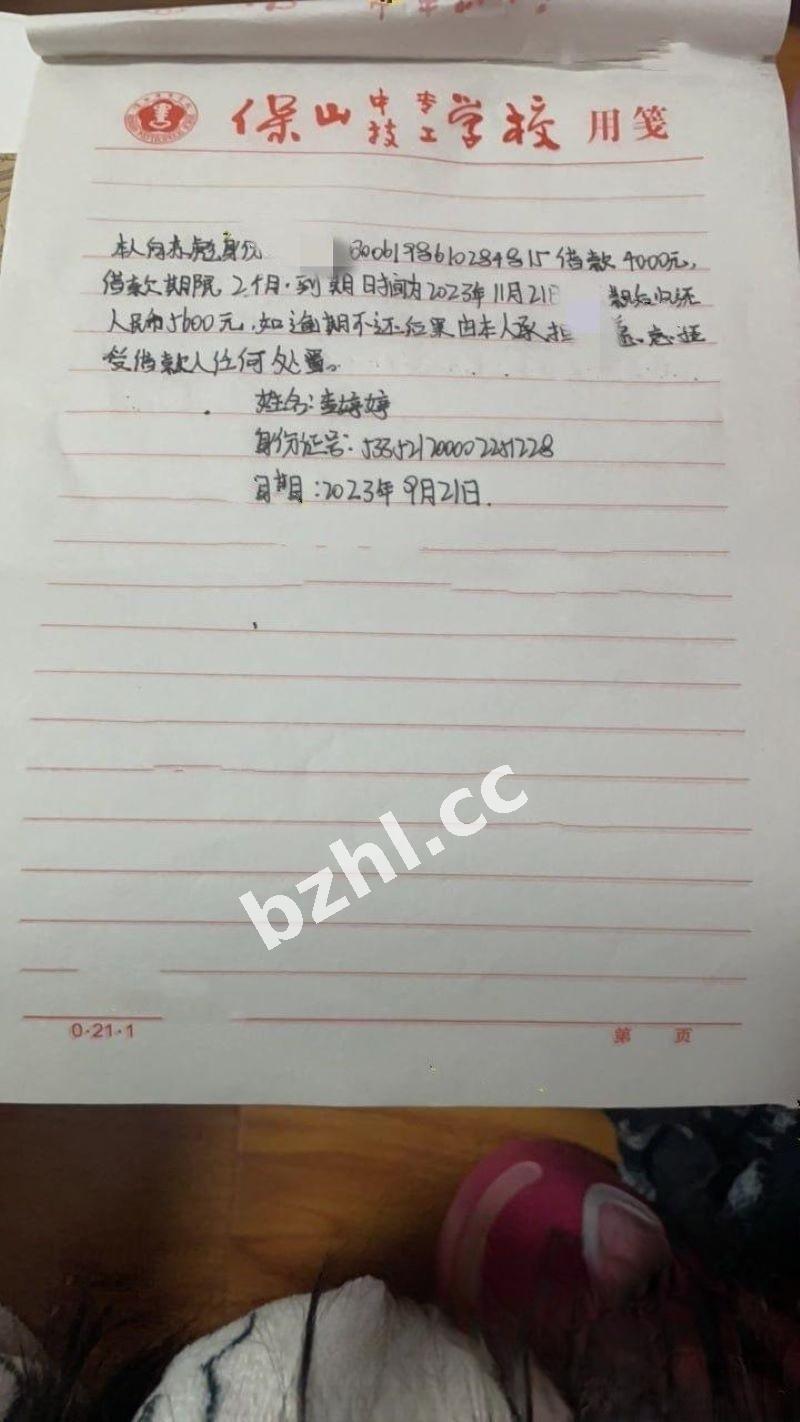 保山中专技工学校用笺
本人向 彪身份 3006198610284815借款4000元,
借款期限2个月.到期日时间为2023年11月21日 归还
人民币5600元,如逾期不还后果由本人承担
受借款人任何处置。
姓名:李婷婷
身份证号:
日期:2023年9月21日.
bzhl.cc
0·21·1
第 页